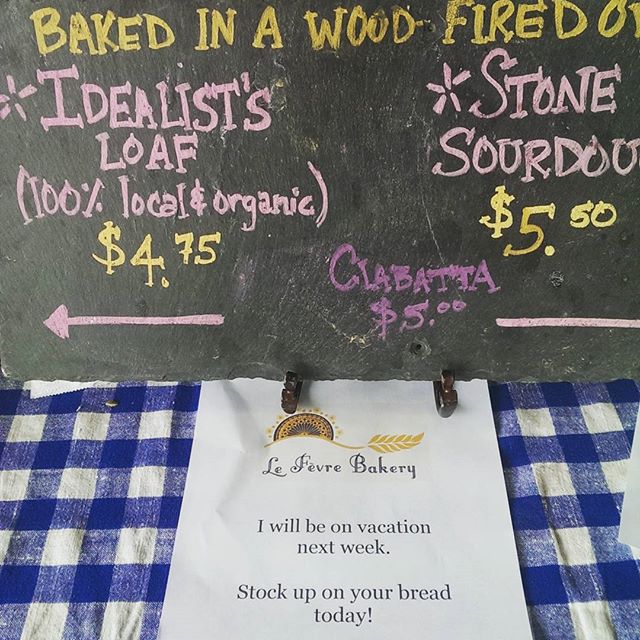 BAKED IN A WOOD-FIRED
IDEALIST'S
LOAF
(100% local & organic)
$4.75
STONE
SOURDOU
$5.50
CIABATTA
$5.00
Le Fèvre Bakery
I will be on vacation
next week.
Stock up on your bread
today!